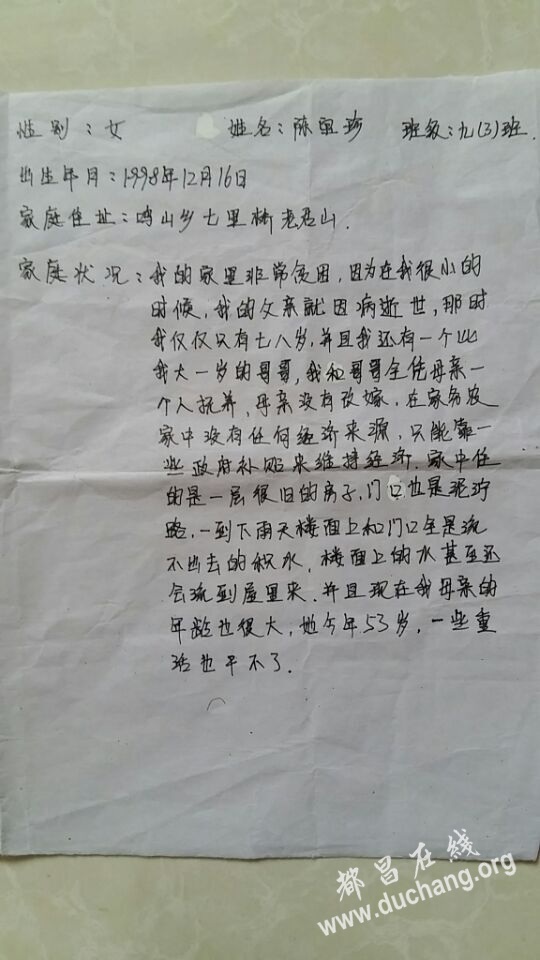 性别：女 姓名：陈 珍 班级：九(3)班
出生年月：1998年12月16日
家庭住址：鸣山乡七里桥老屋山.
家庭状况：我的家里非常贫困，因为在我很小的
时候，我的父亲就因病逝世，那时
我仅仅只有七八岁，并且我还有一个比
我大一岁的哥哥，我和哥哥全凭母亲一
个人抚养，母亲没有改嫁，在家务农
家中没有任何经济来源，只能靠一
些政府补贴来维持经济. 家中住
的是一层很旧的房子，门口也是泥泞
路，一到下雨天楼面上和门口全是流
不出去的积水，楼面上的水甚至还
会流到屋里来. 并且现在我母亲的
年龄也很大，她今年53岁，一些重
活也干不了.
都昌在线
www.duchang.org